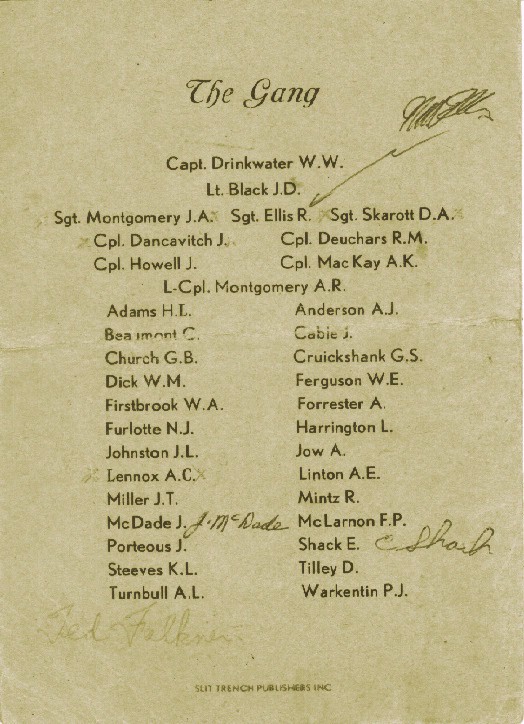 The Gang
Capt. Drinkwater W.W.
Lt. Black J.D.
Sgt. Montgomery J.A. Sgt. Ellis R. Sgt. Skarott D.A.
Cpl. Dancavitch J. Cpl. Deuchars R.M.
Cpl. Howell J. Cpl. MacKay A.K.
L-Cpl. Montgomery A.R.
Adams H.L. Anderson A.J.
Beaumont C. Cable J.
Church G.B. Cruickshank G.S.
Dick W.M. Ferguson W.E.
Firstbrook W.A. Forrester A.
Furlotte N.J. Harrington L.
Johnston J.L. Jow A.
Lennox A.C. Linton A.E.
Miller J.T. Mintz R.
McDade J. J. McDade McLarnon F.P.
Porteous J. Shack E. E Shack
Steeves K.L. Tilley D.
Turnbull A.L. Warkentin P.J.
Ted Falkner
SLIT TRENCH PUBLISHERS INC